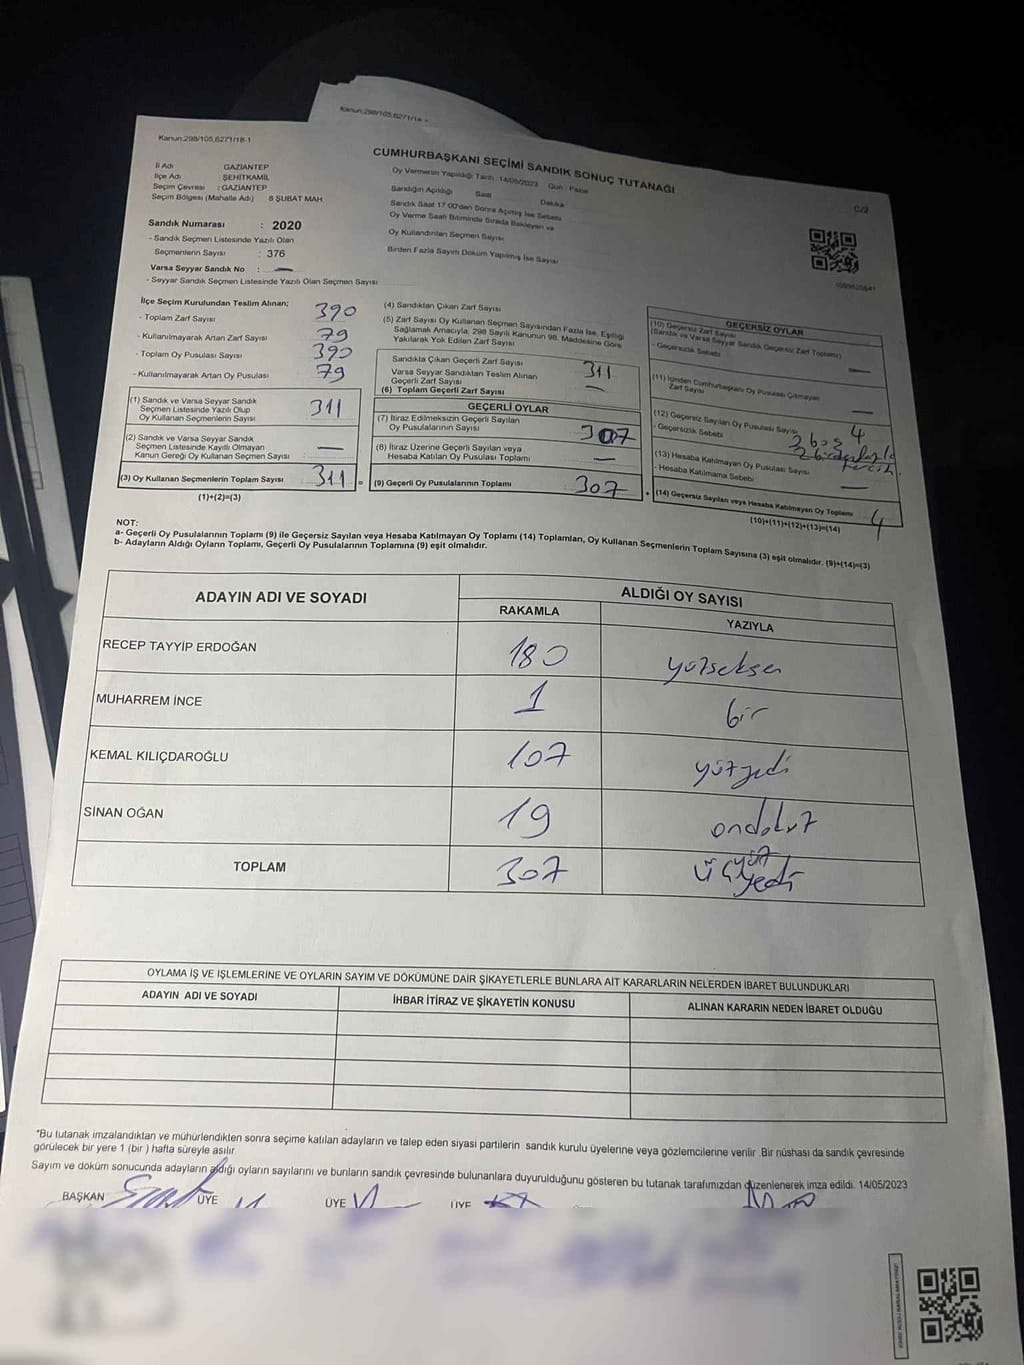 Kanun:298/105,6271/18-1
CUMHURBAŞKANI SEÇİMİ SANDIK SONUÇ TUTANAĞI
C/2
İl Adı GAZİANTEP
İlçe Adı ŞEHİTKAMİL
Seçim Çevresi : GAZİANTEP
Seçim Bölgesi (Mahalle Adı) 8 ŞUBAT MAH
Sandık Numarası : 2020
- Sandık Seçmen Listesinde Yazılı Olan
Seçmenlerin Sayısı : 376
Varsa Seyyar Sandık No : —
- Seyyar Sandık Seçmen Listesinde Yazılı Olan Seçmen Sayısı
Oy Vermenin Yapıldığı Tarih :14/05/2023 Gün : Pazar
Sandığın Açıldığı Saat Dakika
Sandık Saat 17 00'den Sonra Açılmış İse Sebebi
Oy Verme Saati Bitiminde Sırada Bekleyen ve
Oy Kullandırılan Seçmen Sayısı
Birden Fazla Sayım Döküm Yapılmış İse Sayısı
İlçe Seçim Kurulundan Teslim Alınan;
- Toplam Zarf Sayısı 390
- Kullanılmayarak Artan Zarf Sayısı 79
- Toplam Oy Pusulası Sayısı 390
- Kullanılmayarak Artan Oy Pusulası 79
(1) Sandık ve Varsa Seyyar Sandık
Seçmen Listesinde Yazılı Olup
Oy Kullanan Seçmenlerin Sayısı 311
(2) Sandık ve Varsa Seyyar Sandık
Seçmen Listesinde Kayıtlı Olmayan
Kanun Gereği Oy Kullanan Seçmen Sayısı —
(3) Oy Kullanan Seçmenlerin Toplam Sayısı 311 =
(1)+(2)=(3)
(4) Sandıktan Çıkan Zarf Sayısı
(5) Zarf Sayısı Oy Kullanan Seçmen Sayısından Fazla İse, Eşitliği
Sağlamak Amacıyla, 298 Sayılı Kanunun 98. Maddesine Göre
Yakılarak Yok Edilen Zarf Sayısı
Sandıkta Çıkan Geçerli Zarf Sayısı 311
Varsa Seyyar Sandıktan Teslim Alınan
Geçerli Zarf Sayısı —
(6) Toplam Geçerli Zarf Sayısı
GEÇERLİ OYLAR
(7) İtiraz Edilmeksizin Geçerli Sayılan
Oy Pusulalarının Sayısı 307
(8) İtiraz Üzerine Geçerli Sayılan veya
Hesaba Katılan Oy Pusulası Toplamı —
(9) Geçerli Oy Pusulalarının Toplamı 307 +
GEÇERSİZ OYLAR
(10) Geçersiz Zarf Sayısı
(Sandık ve Varsa Seyyar Sandık Geçersiz Zarf Toplamı)
- Geçersizlik Sebebi —
(11) İçinden Cumhurbaşkanı Oy Pusulası Çıkmayan
Zarf Sayısı —
(12) Geçersiz Sayılan Oy Pusulası Sayısı 4
- Geçersizlik Sebebi 2 boş
(13) Hesaba Katılmayan Oy Pusulası Sayısı
- Hesaba Katılmama Sebebi —
(14) Geçersiz Sayılan veya Hesaba Katılmayan Oy Toplamı 4
(10)+(11)+(12)+(13)=(14)
NOT:
a- Geçerli Oy Pusulalarının Toplamı (9) ile Geçersiz Sayılan veya Hesaba Katılmayan Oy Toplamı (14) Toplamları, Oy Kullanan Seçmenlerin Toplam Sayısına (3) eşit olmalıdır. (9)+(14)=(3)
b- Adayların Aldığı Oyların Toplamı, Geçerli Oy Pusulalarının Toplamına (9) eşit olmalıdır.
ADAYIN ADI VE SOYADI
ALDIĞI OY SAYISI
RAKAMLA YAZIYLA
RECEP TAYYİP ERDOĞAN 180 yüzseksen
MUHARREM İNCE 1 bir
KEMAL KILIÇDAROĞLU 107 yüzyedi
SİNAN OĞAN 19 ondokuz
TOPLAM 307 üçyüz yedi
OYLAMA İŞ VE İŞLEMLERİNE VE OYLARIN SAYIM VE DÖKÜMÜNE DAİR ŞİKAYETLERLE BUNLARA AİT KARARLARIN NELERDEN İBARET BULUNDUKLARI
ADAYIN ADI VE SOYADI İHBAR İTİRAZ VE ŞİKAYETİN KONUSU ALINAN KARARIN NEDEN İBARET OLDUĞU
"Bu tutanak imzalandıktan ve mühürlendikten sonra seçime katılan adayların ve talep eden siyasi partilerin sandık kurulu üyelerine veya gözlemcilerine verilir. Bir nüshası da sandık çevresinde
görülecek bir yere 1 (bir ) hafta süreyle asılır.
Sayım ve döküm sonucunda adayların aldığı oyların sayılarını ve bunların sandık çevresinde bulunanlara duyurulduğunu gösteren bu tutanak tarafımızdan düzenlenerek imza edildi. 14/05/2023
BAŞKAN ÜYE ÜYE ÜYE